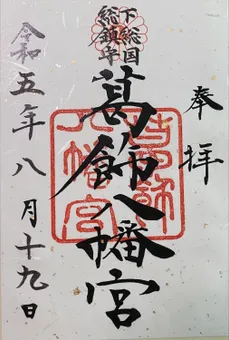 奉拝
下総国
総鎮守
葛飾八幡宮
葛飾
八幡宮
令和五年八月十九日